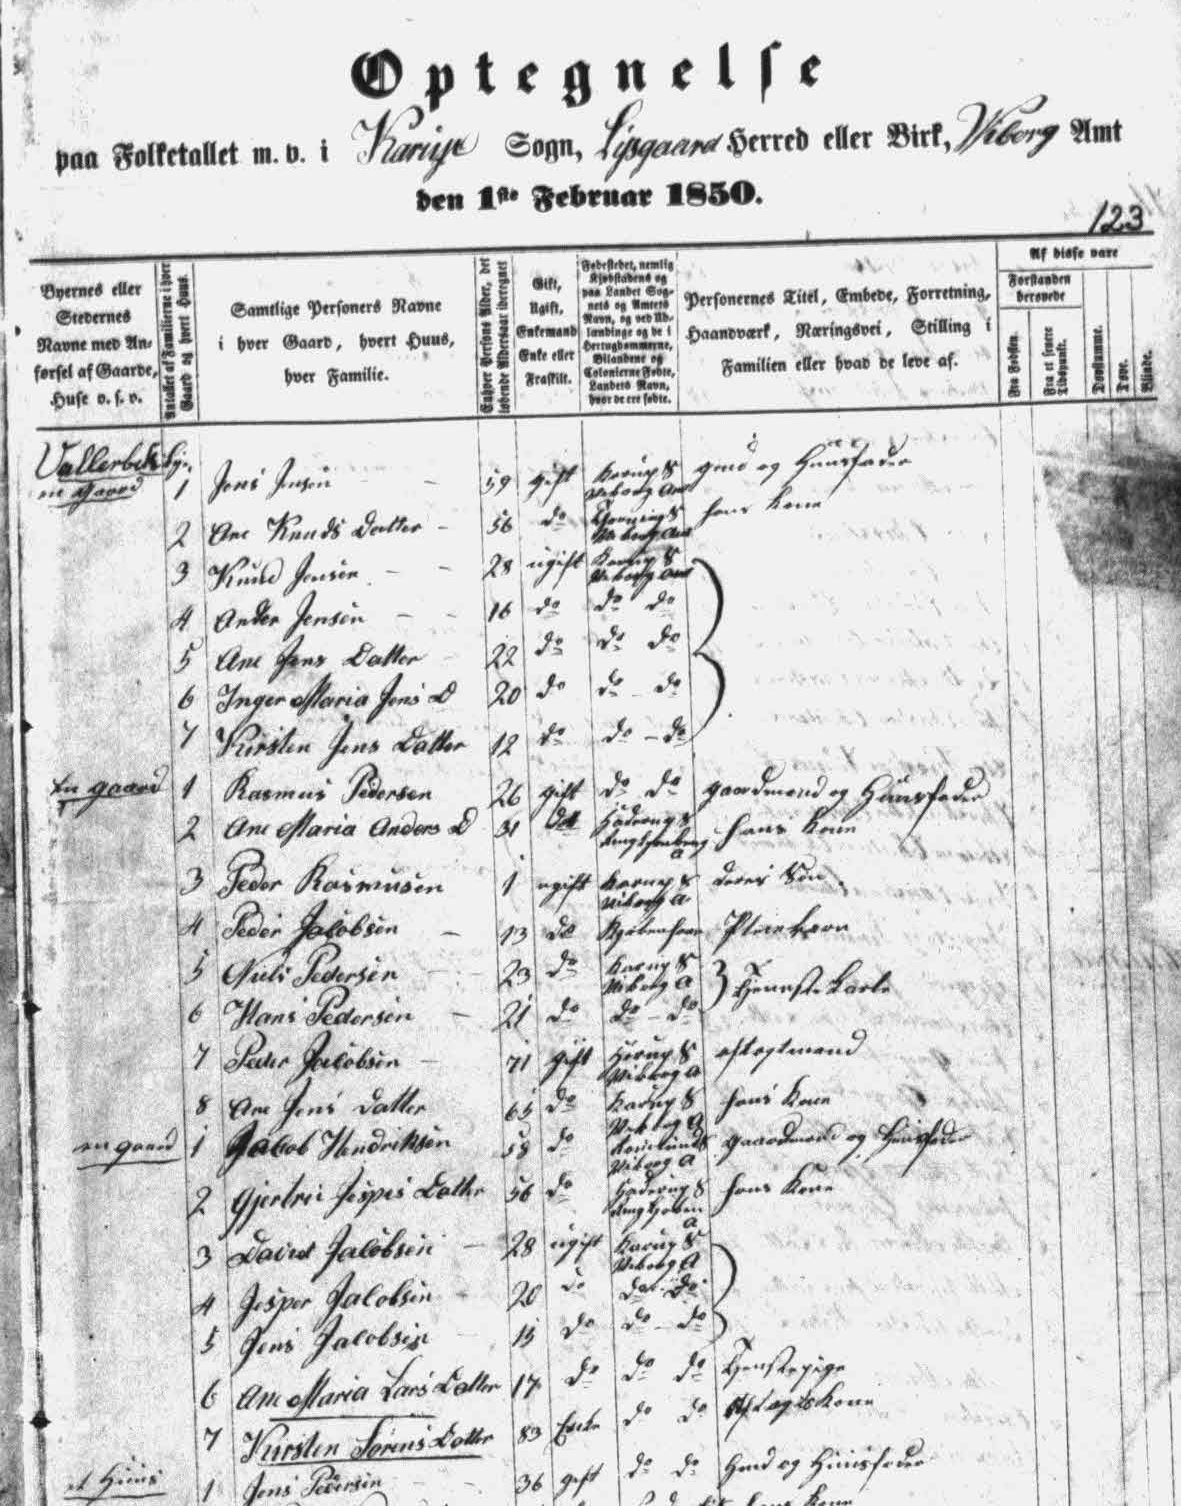 Optegnelse
paa Folketallet m. v. i Karup Sogn, Lysgaard Herred eller Birk, Viborg Amt
den 1ste Februar 1850.
123
Byernes eller Stedernes Navne med Anførsel af Gaarde, Huse o. s. v.
Antallet af Familierne i hver Gaard og hvert Huus.
Samtlige Personers Navne i hver Gaard, hvert Huus, hver Familie.
Enhver Persons Alder, det løbende Aldersaar iberegnet
Gift, Ugift, Enkemand Enke eller Fraskilt.
Fødestedet, nemlig Kjøbstadens og paa Landet Sognets og Amtets Navn, og ved Udlændinge og de i Hertugdømmerne, Bilandene og Colonierne Fødte, Landets Navn, hvor de ere fødte.
Personernes Titel, Embede, Forretning, Haandværk, Næringsvei, Stilling i Familien eller hvad de leve af.
Af disse vare
Forstanden berøvede
Fra Fødslen.
Fra et senere Tidspunkt.
Døvstumme.
Døve.
Blinde.
Vallerbek By.
en Gaard 1 Jens Jensen 59 gift Karup S Viborg Amt gmd og Huusfader
2 Ane Knuds Datter 56 do S Viborg Amt hans Kone
3 Knud Jensen 28 ugift Karup S Viborg Amt
4 Ander Jensen 16 do do do
5 Ane Jens Datter 22 do do do
6 Inger Maria Jens D 20 do do do
7 Kirsten Jens Datter 12 do do do
En gaard 1 Rasmus Pedersen 26 gift do do gaardmand og Huusfader
2 Ane Maria Anders D 31 do Haderup S Ringkjøbing A hans Kone
3 Peder Rasmusen 1 ugift Karup S Viborg A deres Søn
4 Peder Jacobsen 13 do Kjøbenhavn Pleiebarn
5 Niels Pedersen 23 do Karup S Viborg A Tjenestekarle
6 Hans Pedersen 21 do do do
7 Peder Jacobsen 71 gift Karup S Viborg A aftægtmand
8 Ane Jens Datter 65 do Karup S Viborg A hans Kone
en gaard 1 Jacob Hendriksen 58 do S Viborg A gaardmand og Huusfader
2 Gjertrui Jespers Datter 56 do Haderup S A hans Kone
3 David Jacobsen 28 ugift Karup S Viborg A
4 Jesper Jacobsen 20 do do do
5 Jens Jacobsen 15 do do do
6 Ane Maria Lars Datter 17 do do do Tjenestepige
7 Kirsten Sørens Datter 83 Enke do do Aftægtskone
et Huus 1 Jens Pedersen 36 gift do do Hmd og Huusfader
hans Kone